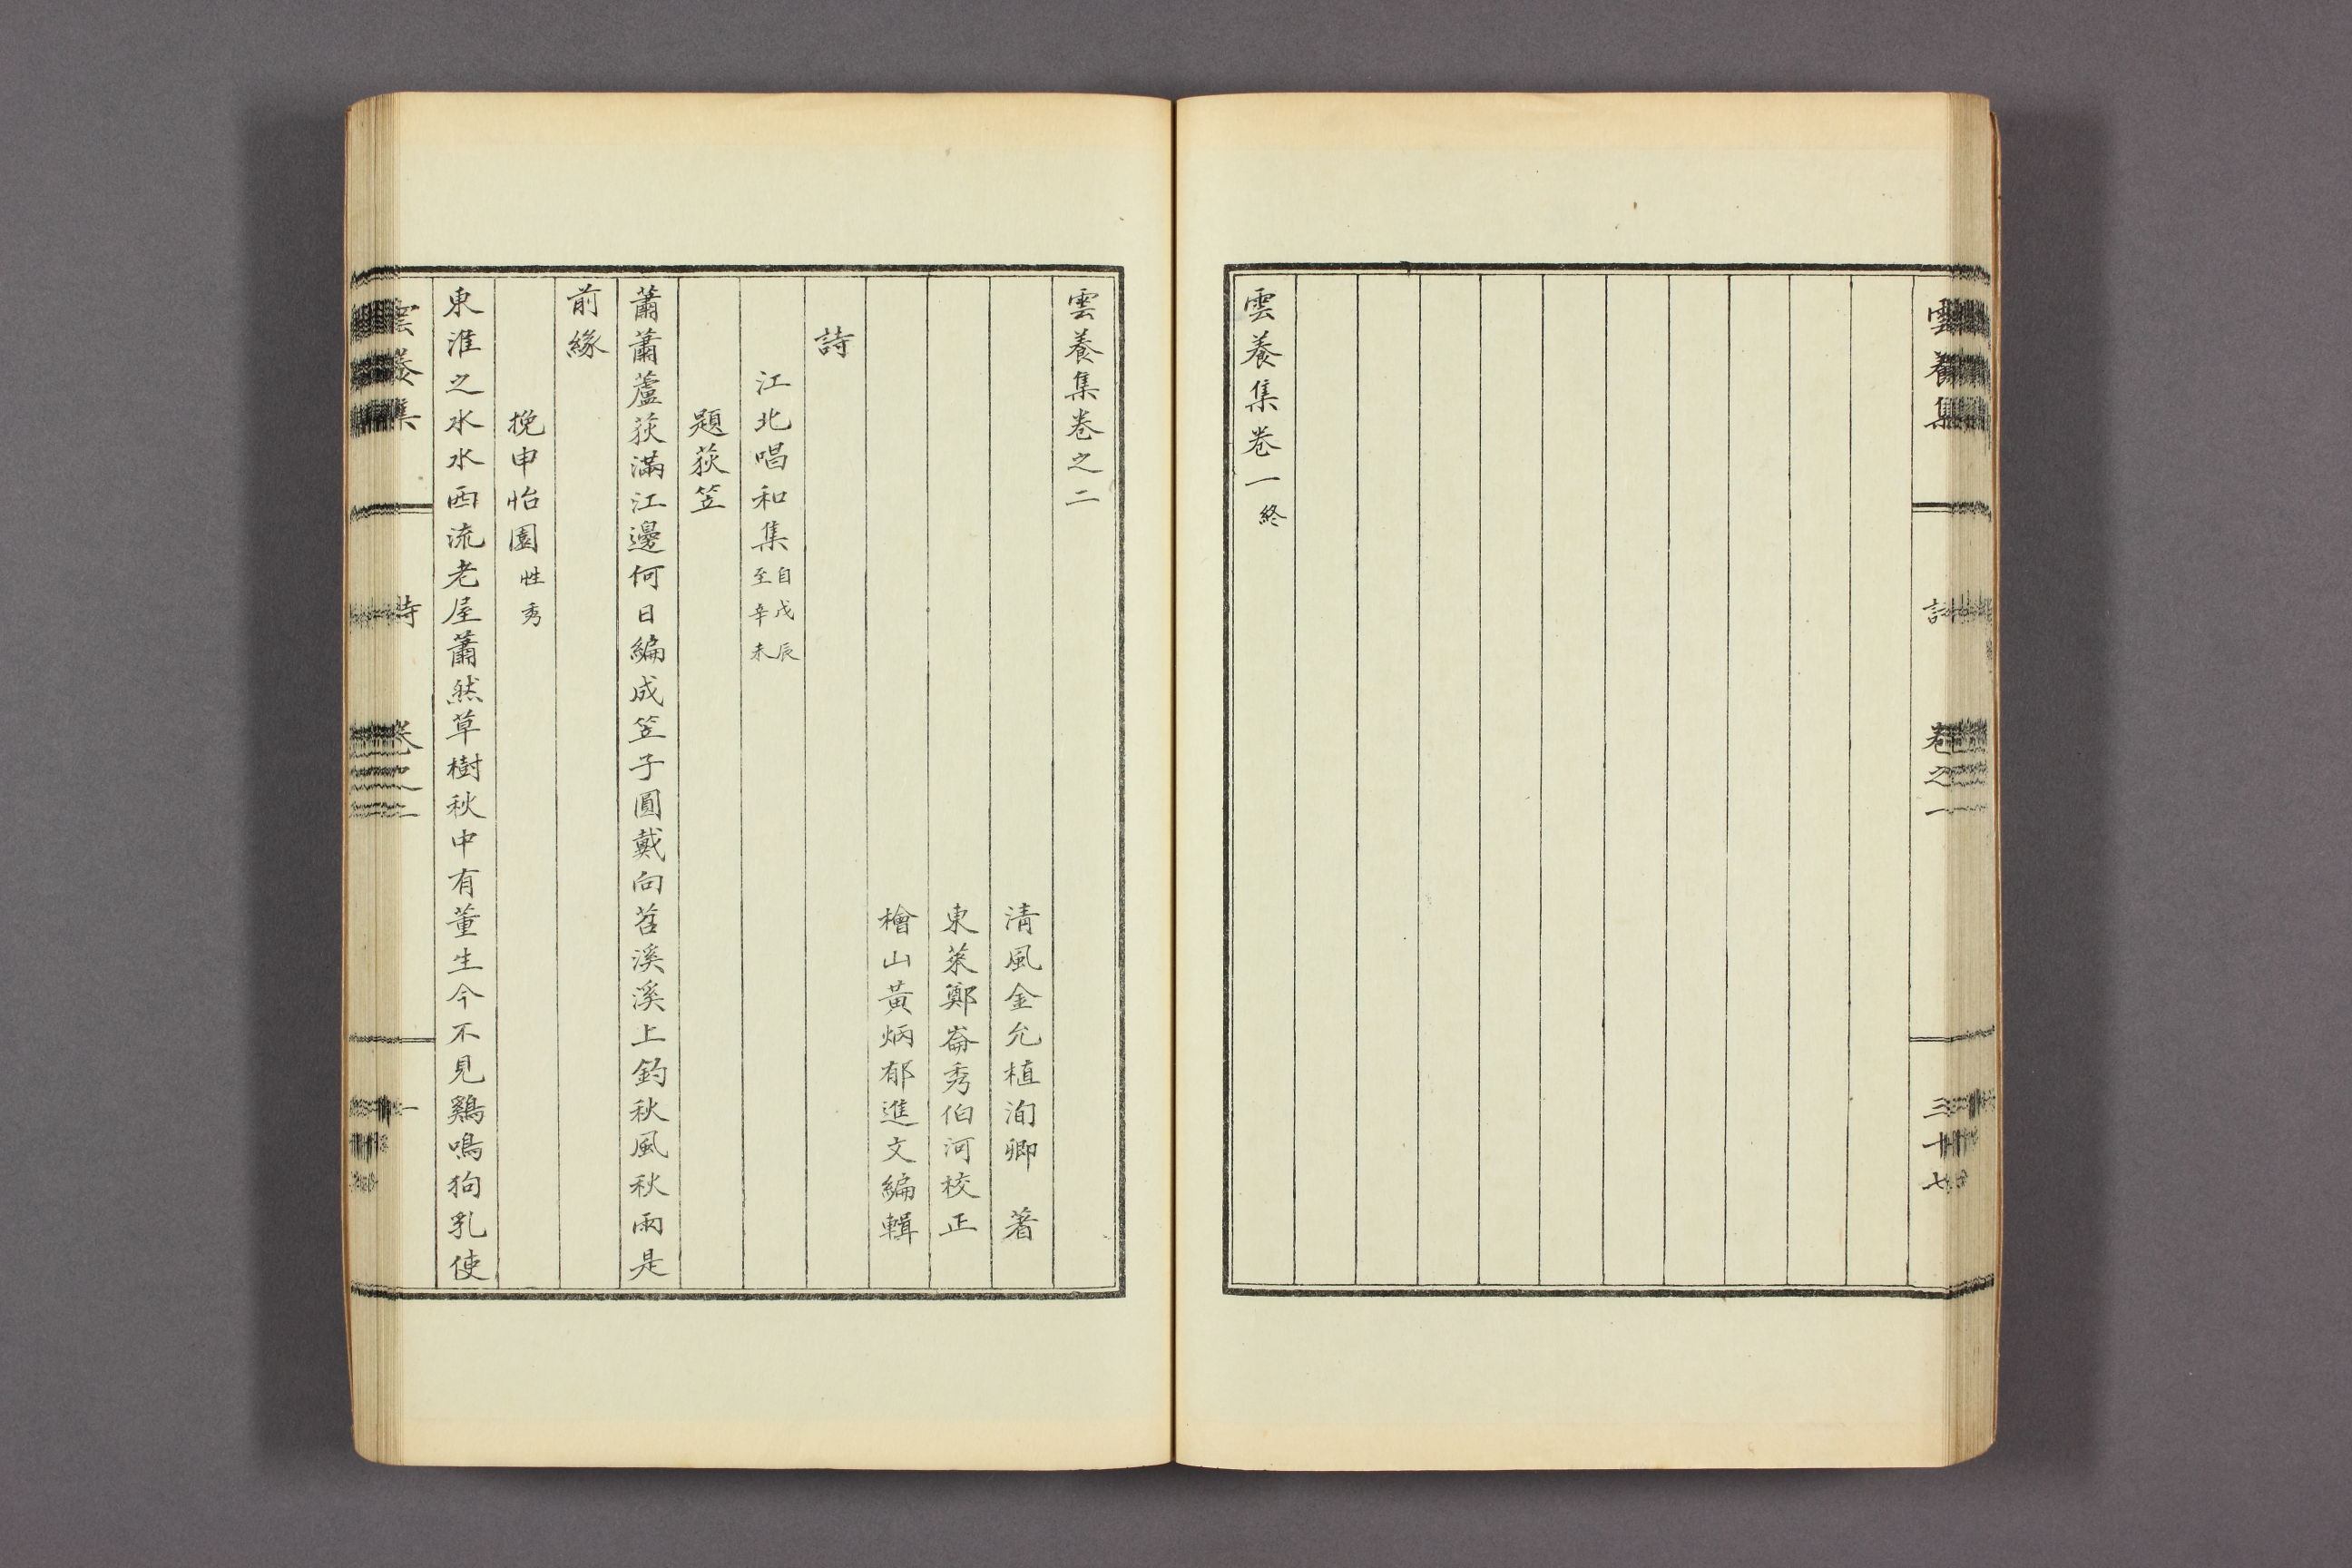 雲養集
詩
卷之一
三十七
雲養集卷一終
雲養集卷之二
淸風金允植洵卿 著
東萊鄭崙秀伯河校正
檜山黃炳郁進文編輯
詩
江北唱和集自戊辰至辛未
題荻笠
蕭蕭蘆荻滿江邊何日編成笠子圓戴向苕溪溪上釣秋風秋雨是
前緣
挽申怡園性秀
東淮之水水西流老屋蕭然草樹秋中有董生今不見鷄鳴狗乳使
雲養集
詩
卷之二
一